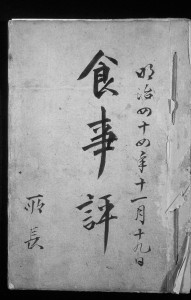 明治四十四年十一月十九日
食事評
所長